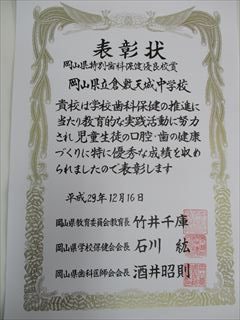 表彰状
岡山県特別歯科保健優良校賞
岡山県立倉敷天城中学校
貴校は学校歯科保健の推進に
当たり教育的な実践活動に努力
され児童生徒の口腔・歯の健康
づくりに特に優秀な成績を収め
られましたので表彰します
平成29年12月16日
岡山県教育委員会教育長 竹井千庫
岡山県学校保健会会長 石川 紘
岡山県歯科医師会会長 酒井昭則